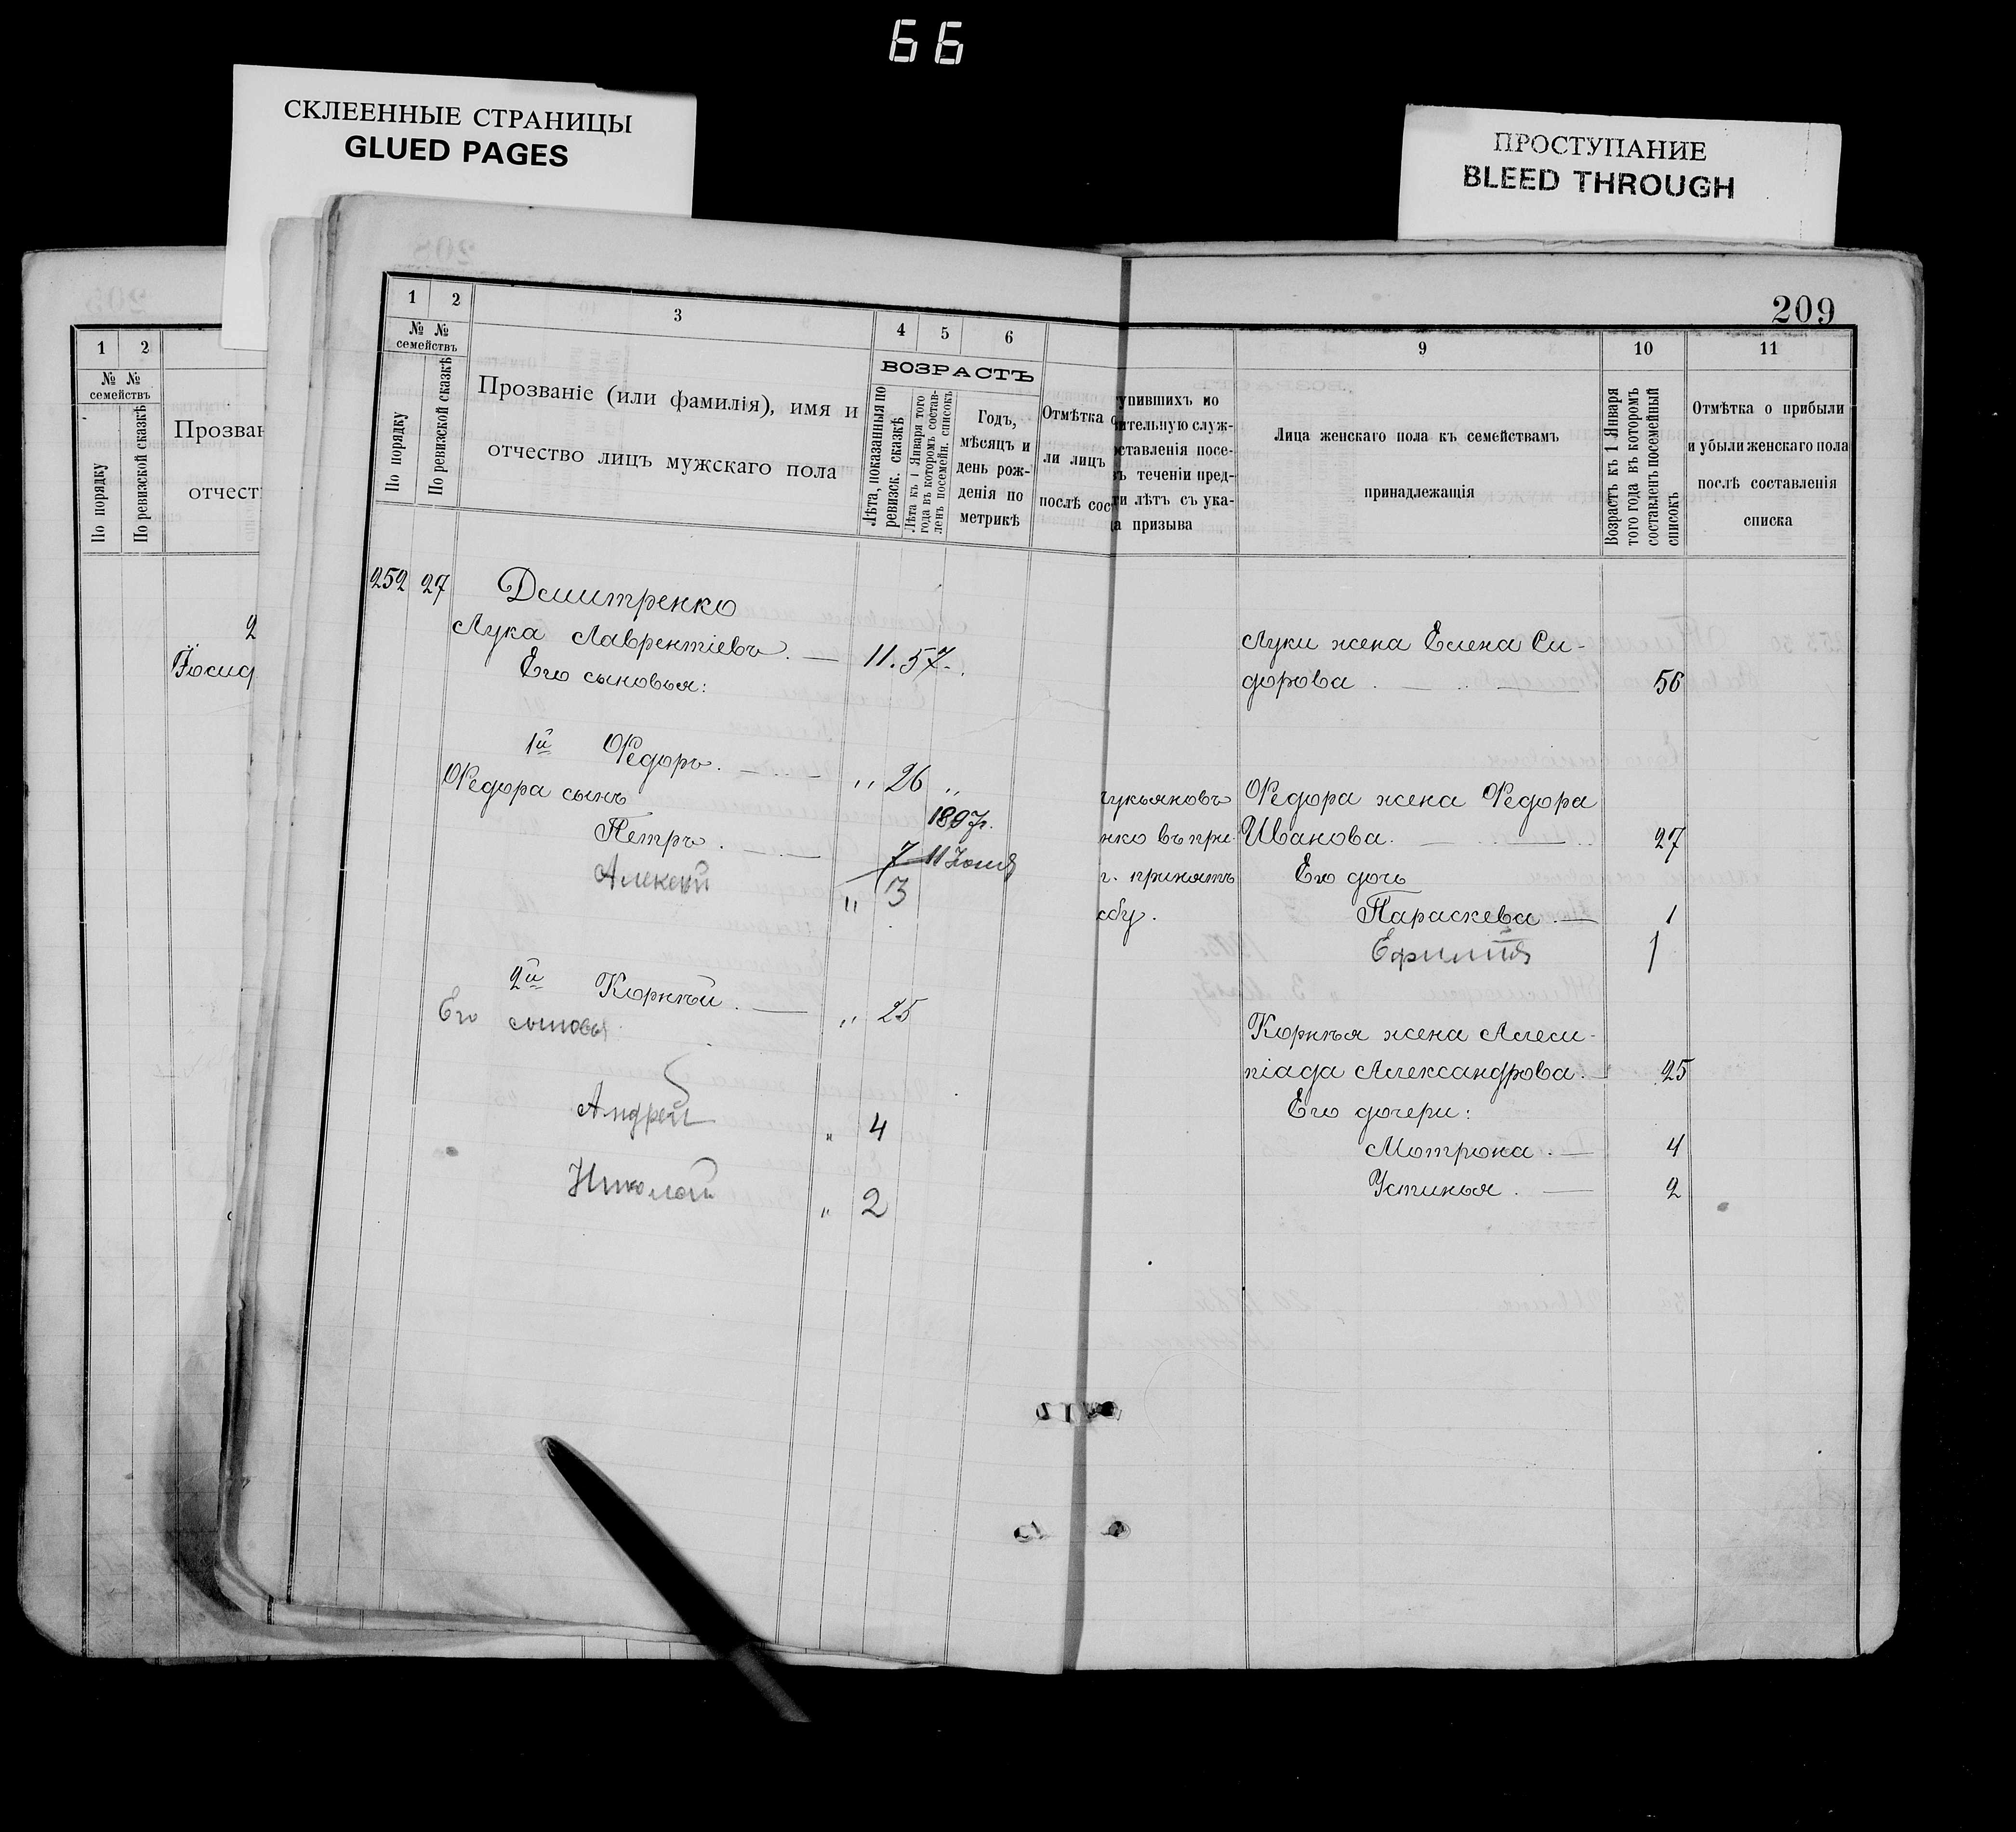 66
СКЛЕЕННЫЕ СТРАНИЦЫ
GLUED PAGES
ПРОСТУПАНИЕ
BLEED THROUGH
209
1 2
№ №
семействъ
По порядку
По ревизской сказкѣ
Прозван
отчест
2
1 2 3 4 5 6
№ №
семействъ
По порядку
По ревизской сказкѣ
Прозваніе (или фамилія), имя и
отчество лицъ мужскаго пола
ВОЗРАСТЪ
Лѣта, показанныя по
ревизск. сказкѣ
Лѣта къ 1 Января того
года въ которомъ состав-
ленъ посемейн. списокъ
Годъ,
мѣсяцъ и
день рож-
денія по
метрикѣ
Отмѣтка о
ли лицъ
послѣ сос
упившихъ по
ительную служ-
оставленія посе-
ъ теченіи пред-
ти лѣтъ съ ука-
а призыва
9 10 11
Лица женскаго пола къ семействамъ
принадлежащія
Возрастъ къ 1 Января
того года въ которомъ
составленъ посемейный
списокъ
Отмѣтка о прибыли
и убыли женскаго пола
послѣ составленія
списка
252 27 Демитренко
Лука Лаврентіевъ. — 11. 57.
Его сыновья:
1й Ѳедоръ. — " 26 "
Ѳедора сынъ
1897г.
Петръ. — 7 11 Іюня
Алексѣй " 3
2й Корнѣй. — " 25
Его сыновья
Андрей " 4
Николай " 2
укьяновъ
нко въ при-
г. принятъ
сбу.
Луки жена Елена Си-
дорова. — 56
Ѳедора жена Ѳедора
Иванова. — 27
Его дочь
Параскева. — 1
Ефимія 1
Корнѣя жена Алеми-
піада Александрова. — 25
Его дочери:
Мотрона. — 4
Устинья. — 2